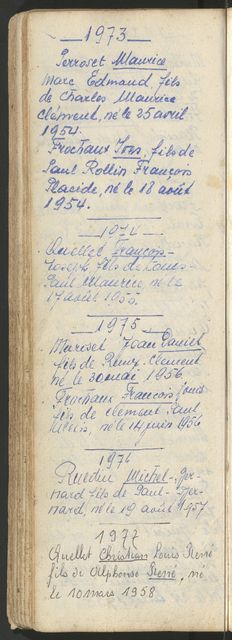 1973
Perroset Maurice
Marc Edmond, fils
de Charles Maurice
Clément, né le 25 avril
1954.
Frochaux Yves, fils de
Paul Rollin François
Placide, né le 18 août
1954.
1974
Quellet François-
Joseph fils de Louis-
Paul Maurice, né le
17 août 1955.
1975
Muriset Jean Daniel
fils de Remy Clement
né le 30 mai 1956
Frochaux François
fils de Clement Paul
, né le 14 juin 1956
1976
Ruedin Michel-Ber-
nard fils de Paul-Ber-
nard, né le 19 août 1957
1977
Quellet Christian Louis René
fils de Alphonse René, né
le 10 mars 1958